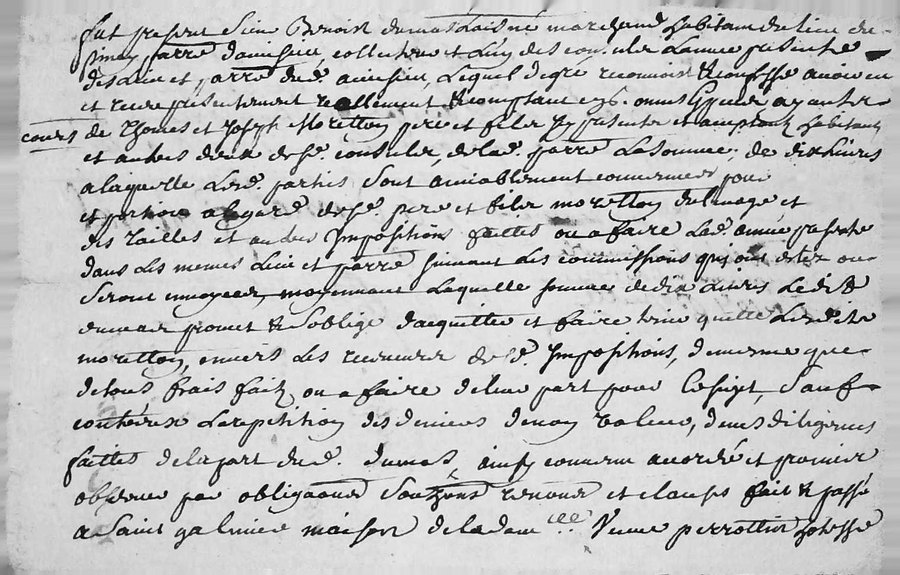 fut present Sieur Benoist dumas Laisné marchand habitant du lieu de
parre daveisieu, collecteur et Lun des consuls Lannee presente
desdLieu et parre dud. aveisieu, Lequel degré reconnoist & confesse avoir eu
et receu presentement reellement & comptant
cours de Thomas et Joseph Moretton pere et fils habitants
et autres deux desd. consuls, delad. parre La somme, de dix Livres
a laquelle Lesd. parties sont amiablement convenues pour
et portion alegard desd. pere et fils moretton et
des tailles et autres Impositions faittes ou a faire Lad. année presente
dans Les memes Lieu et parre suivant Les commissions quj ont estez ou
seront envoyees, moyennant Laquelle somme de dix Livres Ledit
dumas promet & soblige dacquitter et faire tenir quitte Lesdits
moretton, envers Les receveurs desd. Impositions, demesme que
de tous frais faits ou a faire de leur part pour Ce sujet, sauf
Larepetition des deniers de non valeur, de mes diligences
faittes de la part dud. dumas, ainsy convenu accordé et promis
observer par obligations soubzmissions renons et clauses fait & passé
a Saint galmier maison de la dam.lle Veuve perrottin hotesse